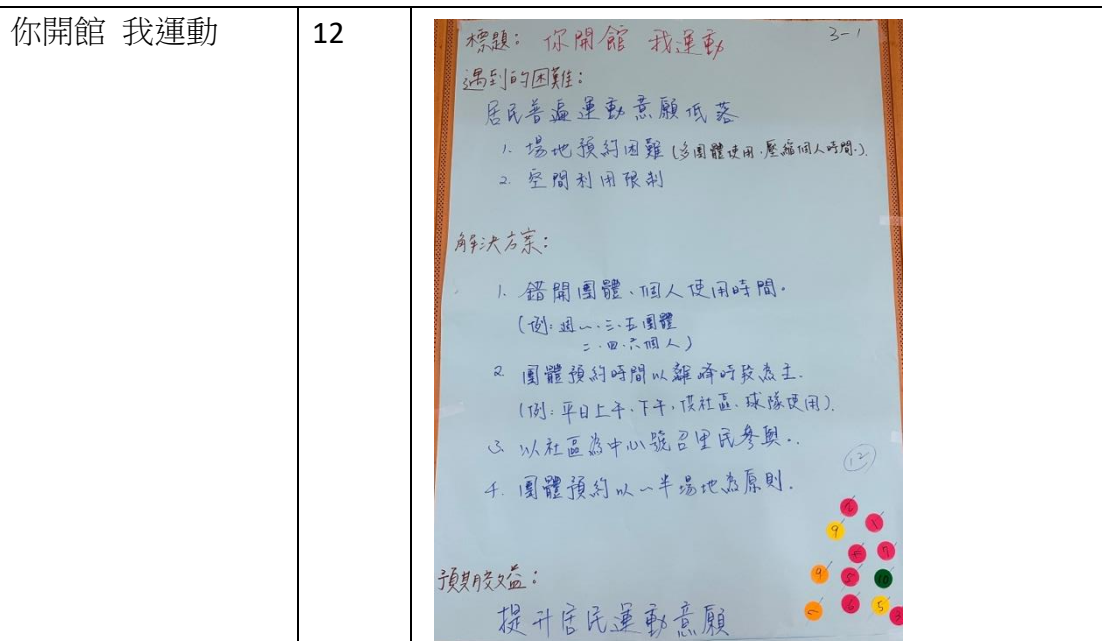 你開館 我運動
12
標題：你開館 我運動
3-1
遇到的困難：
居民普遍運動意願低落
1. 場地預約困難(多團體使用.壓縮個人時間.).
2. 空間利用限制
解決方案：
1. 錯開團體、個人使用時間。
(例：週一.三.五團體
二.四.六個人)
2 團體預約時間以離峰時段為主.
(例：平日上午、下午，供社區、球隊使用).
3. 以社區為中心號召里民參與..
4. 團體預約以一半場地為原則.
12
預期效益：
提升居民運動意願